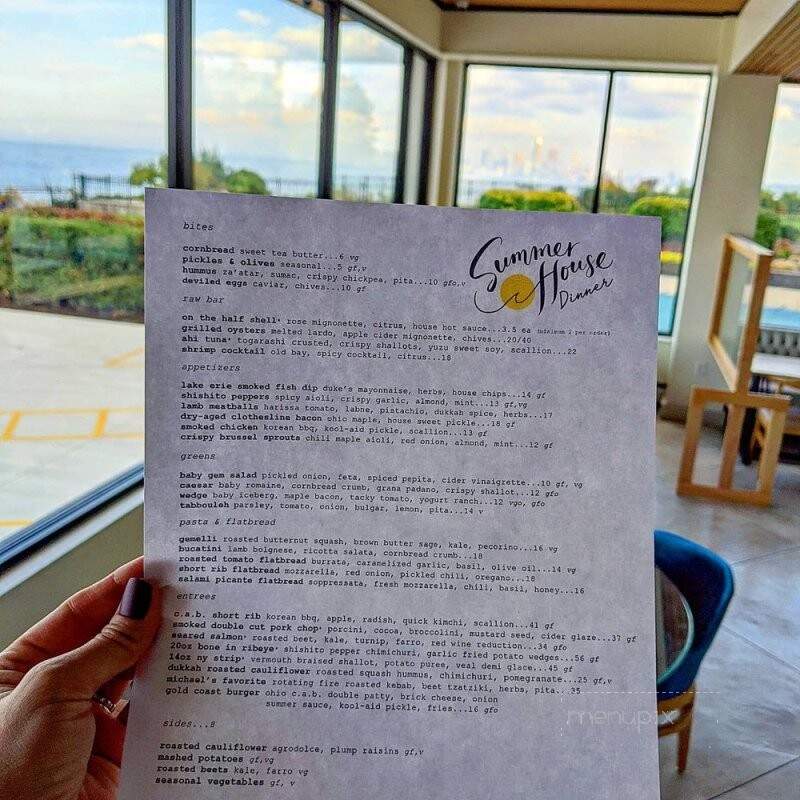 Summer
House
Dinner
bites
cornbread sweet tea butter...6 vg
pickles & olives seasonal...5 gf,v
hummus za'atar, sumac, crispy chickpea, pita...10 gfo,v
deviled eggs caviar, chives...10 gf
raw bar
on the half shell* rose mignonette, citrus, house hot sauce...3.5 ea (minimum 2 per order)
grilled oysters melted lardo, apple cider mignonette, chives...20/40
ahi tuna* togarashi crusted, crispy shallots, yuzu sweet soy, scallion...22
shrimp cocktail old bay, spicy cocktail, citrus...18
appetizers
lake erie smoked fish dip duke's mayonnaise, herbs, house chips...14 gf
shishito peppers spicy aioli, crispy garlic, almond, mint...13 gf,vg
lamb meatballs harissa tomato, labne, pistachio, dukkah spice, herbs...17
dry-aged clothesline bacon ohio maple, house sweet pickle...18 gf
smoked chicken korean bbq, kool-aid pickle, scallion...13 gf
crispy brussel sprouts chili maple aioli, red onion, almond, mint...12 gf
greens
baby gem salad pickled onion, feta, spiced pepita, cider vinaigrette...10 gf, vg
caesar baby romaine, cornbread crumb, grana padano, crispy shallot...12 gfo
wedge baby iceberg, maple bacon, tacky tomato, yogurt ranch...12 vgo, gfo
tabbouleh parsley, tomato, onion, bulgar, lemon, pita...14 v
pasta & flatbread
gemelli roasted butternut squash, brown butter sage, kale, pecorino...16 vg
bucatini lamb bolgnese, ricotta salata, cornbread crumb...18
roasted tomato flatbread burrata, caramelized garlic, basil, olive oil...14 vg
short rib flatbread mozzarella, red onion, pickled chili, oregano...18
salami picante flatbread soppressata, fresh mozzarella, chili, basil, honey...16
entrees
c.a.b. short rib korean bbq, apple, radish, quick kimchi, scallion...41 gf
smoked double cut pork chop* porcini, cocoa, broccolini, mustard seed, cider glaze...37 gf
seared salmon* roasted beet, kale, turnip, farro, red wine reduction...34 gfo
20oz bone in ribeye* shishito pepper chimichuri, garlic fried potato wedges...56 gf
14oz ny strip* vermouth braised shallot, potato puree, veal demi glace...45 gf
dukkah roasted cauliflower roasted squash hummus, chimichuri, pomegranate...25 gf,v
michael's favorite rotating fire roasted kebab, beet tzatziki, herbs, pita...35
gold coast burger ohio c.a.b. double patty, brick cheese, onion
summer sauce, kool-aid pickle, fries...16 gfo
sides...8
roasted cauliflower agrodolce, plump raisins gf,v
mashed potatoes gf,vg
roasted beets kale, farro vg
seasonal vegetables gf, v
menupix